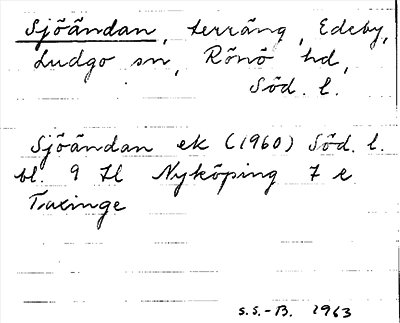 Sjöändan, terräng, Edeby,
Ludgo sn, Rönö hd,
Söd. l.
Sjöändan ek (1960) Söd. l.
bl. 9 H Nyköping 7 e
Taxinge
S.S.-B. 1963